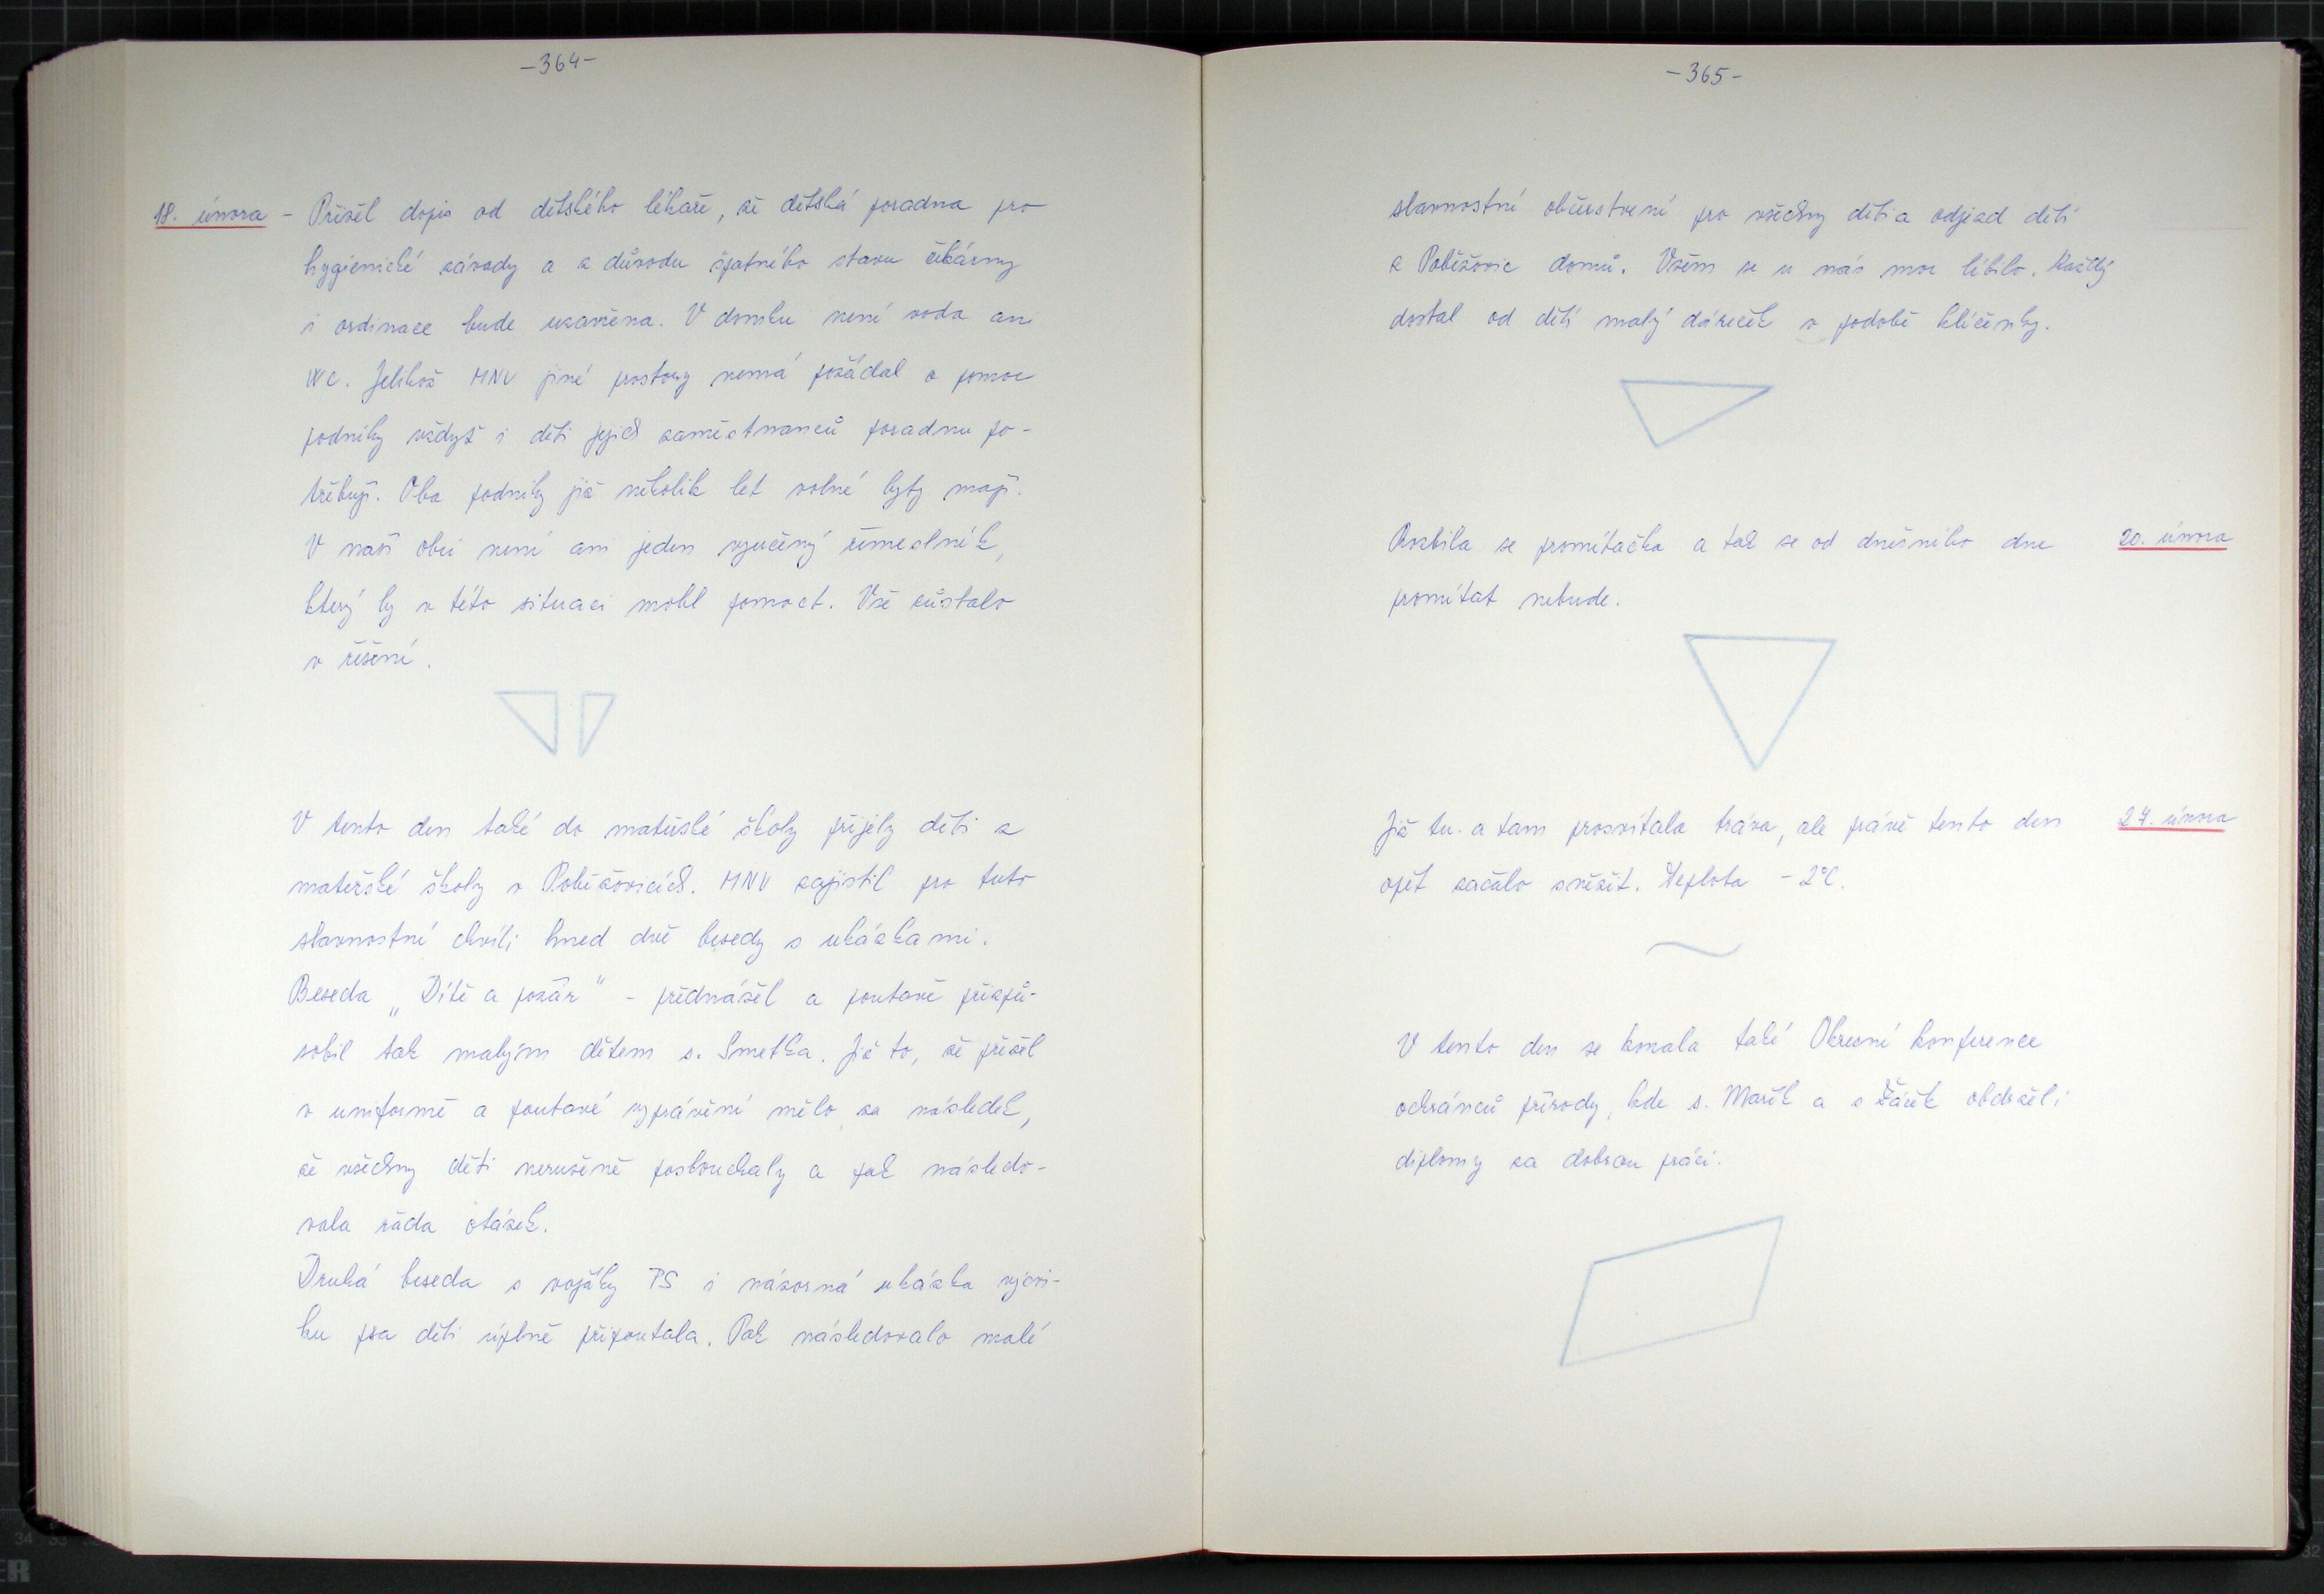 -364-
18. února - Přišel dopis od dětského lékaře, že dětská poradna pro
hygienické závady a z důvodu špatného stavu čekárny
i ordinace bude uzavřena. V domku není voda ani
WC. Jelikož MNV jiné prostory nemá požádal o pomoc
podniky vždyť i děti jejich zaměstnanců poradnu po-
třebují. Oba podniky již několik let volné byty mají.
V naší obci není ani jeden vyučený řemeslník,
který by v této situaci mohl pomoct. Vše zůstalo
v řešení.
V tento den také do mateřské školy přijely děti z
mateřské školy v Poběžovicích. MNV zajistil pro tuto
slavnostní chvíli hned dvě besedy s ukázkami.
Beseda „Dítě a požár" - přednášel a poutavě přizpů-
sobil tak malým dětem s. Smetka. Již to, že přišel
v uniformě a poutavé vyprávění mělo za následek,
že všechny děti nerušeně poslouchaly a pak následo-
vala řada otázek.
Druhá beseda s vojáky PS i názorná ukázka výcvi-
ku psa děti úplně připoutala. Pak následovalo malé
-365-
slavnostní občerstvení pro všechny děti a odjezd dětí
z Poběžovic domů. Všem se u nás moc líbilo. Každý
dostal od dětí malý dáreček v podobě klíčenky.
Rozbila se promítačka a tak se od dnešního dne 20. února
promítat nebude.
Již tu a tam prosvítala tráva, ale právě tento den 27. února
opět začalo sněžit. Teplota -2°C.
V tento den se konala také Okresní konference
ochránců přírody, kde s. Mařík a s Žáček obdrželi
diplomy za dobrou práci.